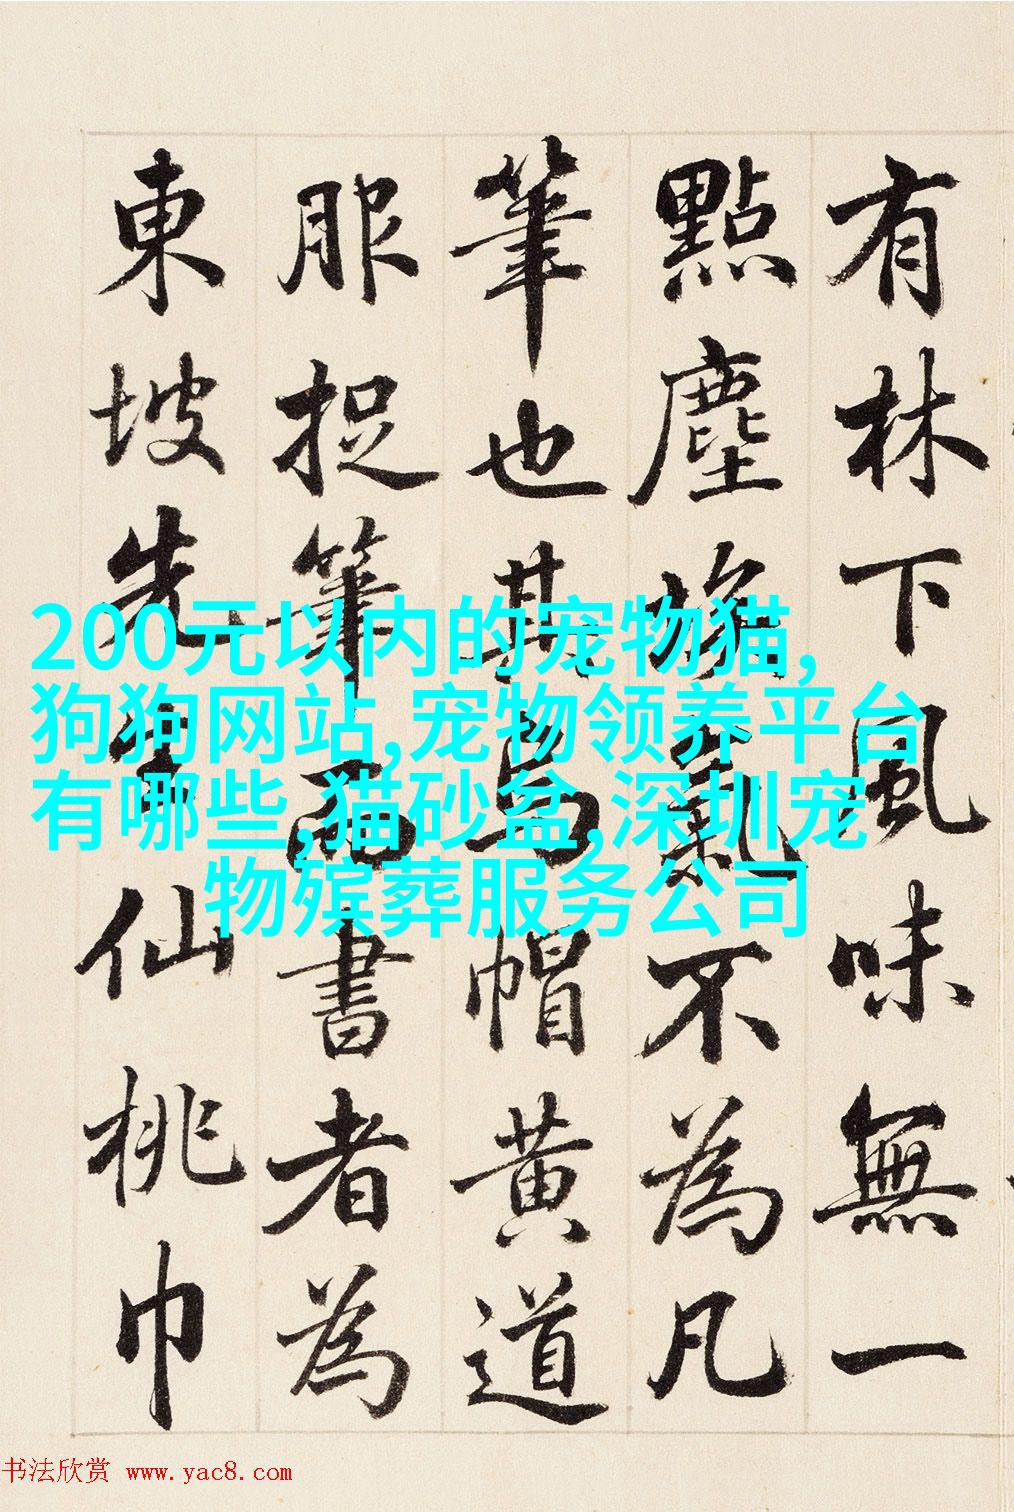 有林下風味無一
點塵埃氣不為凡
筆也其烏帽黃道
服捉筆而書者為
東坡先生仙桃巾
200元以内的宠物猫,
狗狗网站,宠物领养平台
有哪些,猫砂盆,深圳宠
物殡葬服务公司
书法欣赏 www.yac8.com